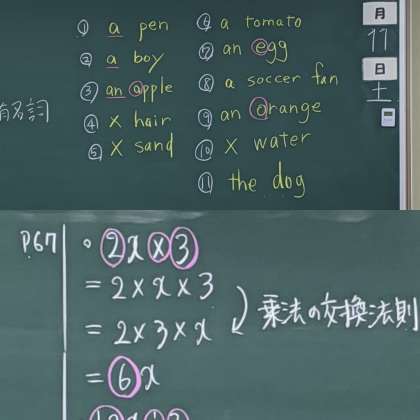 ① a pen
② a boy
③ an apple
④ × hair
⑤ × sand
⑥ a tomato
⑦ an egg
⑧ a soccer fan
⑨ an orange
⑩ × water
⑪ the dog
名詞
月
11
日
土
P.67
。2x×3
=2×x×3
=2×3×x
乗法の交換法則
=6x